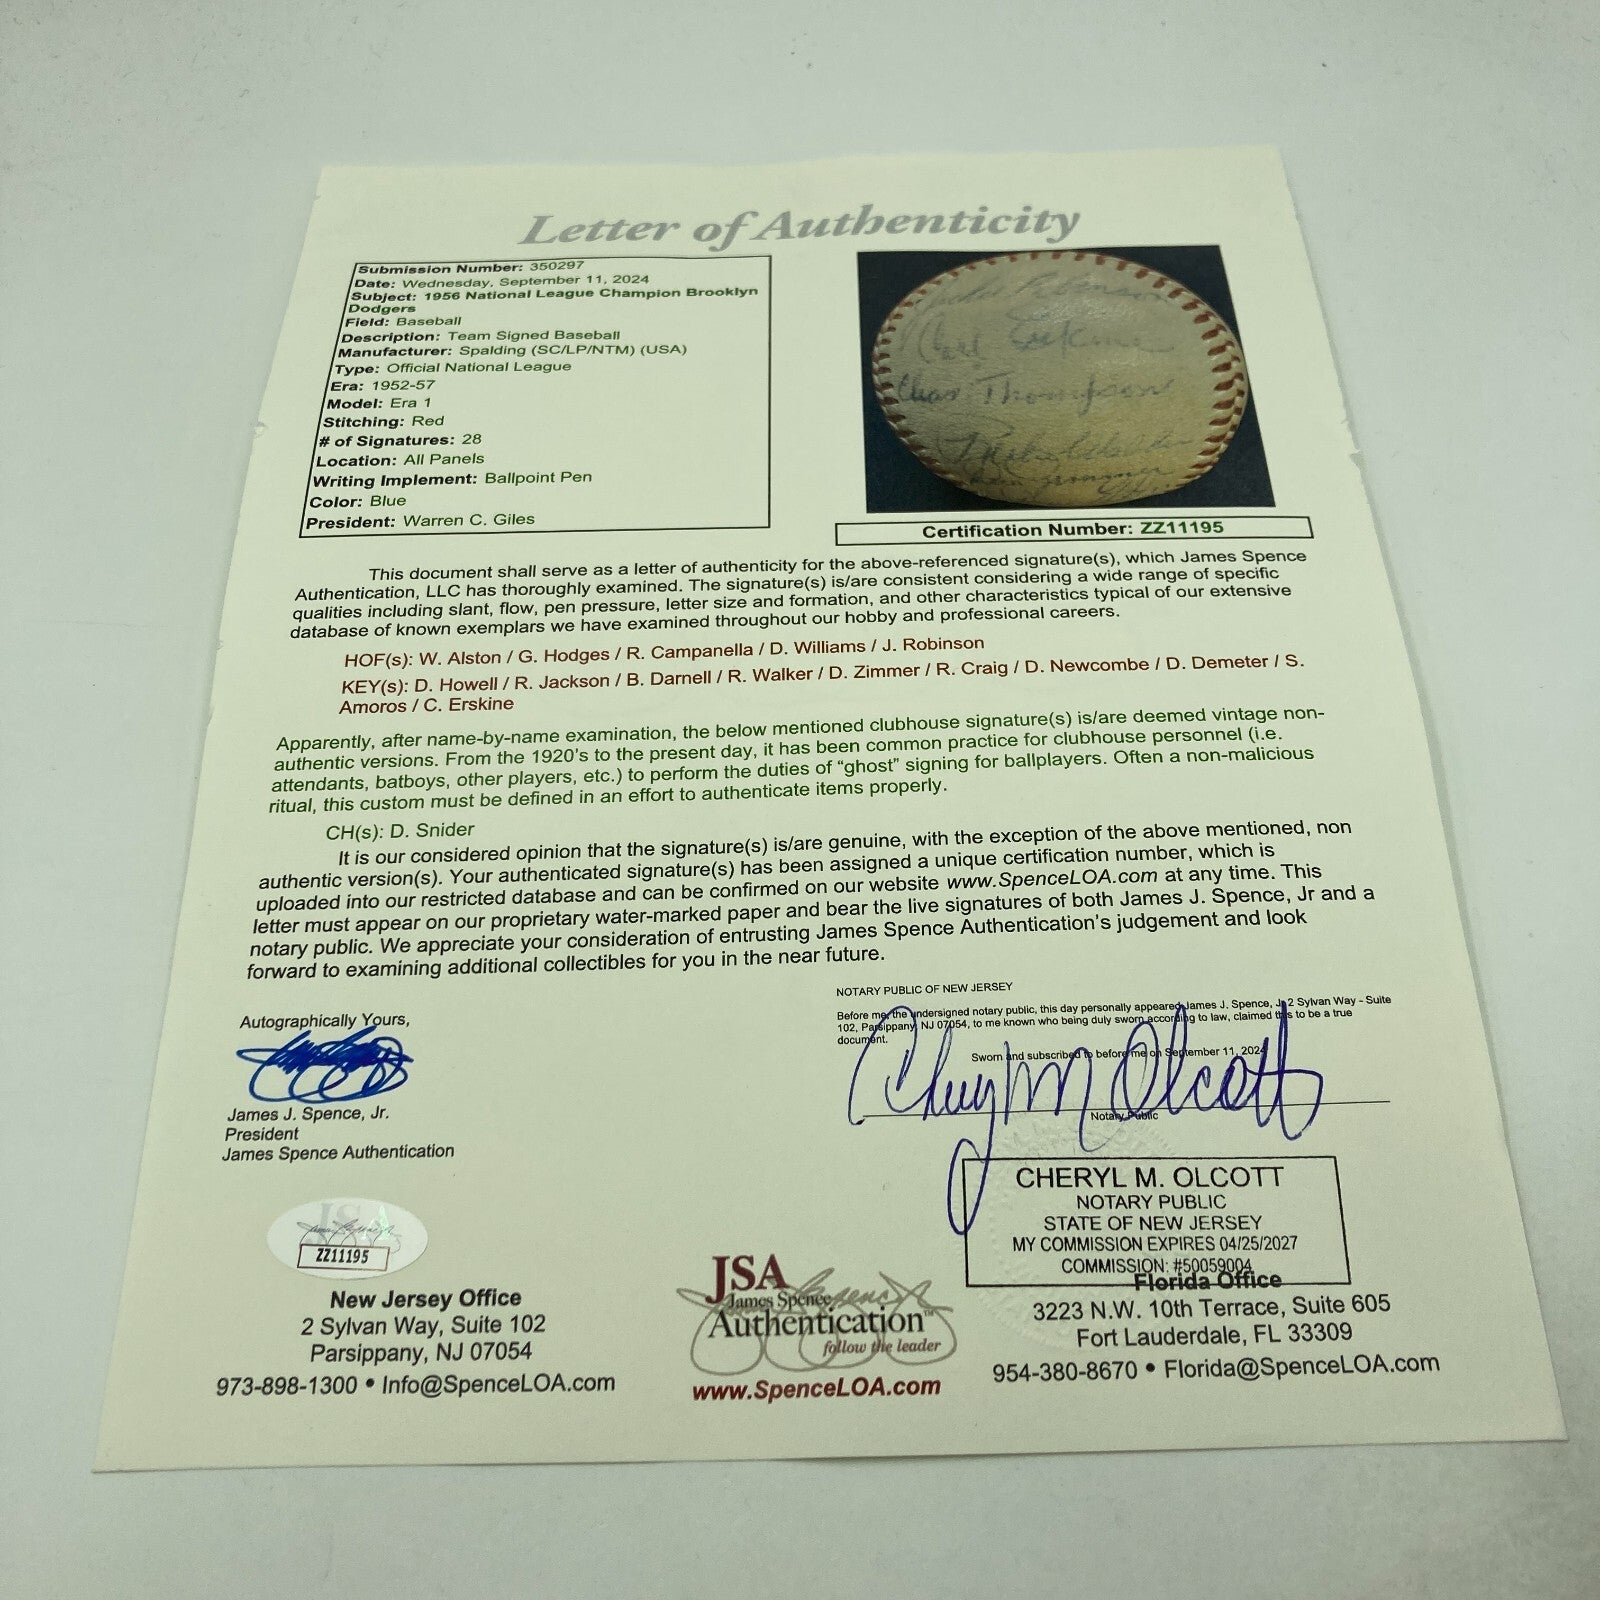 Letter of Authenticity
Submission Number: 350297
Date: Wednesday, September 11, 2024
Subject: 1956 National League Champion Brooklyn
Dodgers
Field: Baseball
Description: Team Signed Baseball
Manufacturer: Spalding (SC/LP/NTM) (USA)
Type: Official National League
Era: 1952-57
Model: Era 1
Stitching: Red
# of Signatures: 28
Location: All Panels
Writing Implement: Ballpoint Pen
Color: Blue
President: Warren C. Giles
Jackie Robinson
Carl Erskine
Chas Thompson
Certification Number: ZZ11195
This document shall serve as a letter of authenticity for the above-referenced signature(s), which James Spence
Authentication, LLC has thoroughly examined. The signature(s) is/are consistent considering a wide range of specific
qualities including slant, flow, pen pressure, letter size and formation, and other characteristics typical of our extensive
database of known exemplars we have examined throughout our hobby and professional careers.
HOF(s): W. Alston / G. Hodges / R. Campanella / D. Williams / J. Robinson
KEY(s): D. Howell / R. Jackson / B. Darnell / R. Walker / D. Zimmer / R. Craig / D. Newcombe / D. Demeter / S.
Amoros / C. Erskine
Apparently, after name-by-name examination, the below mentioned clubhouse signature(s) is/are deemed vintage non-
authentic versions. From the 1920's to the present day, it has been common practice for clubhouse personnel (i.e.
attendants, batboys, other players, etc.) to perform the duties of "ghost" signing for ballplayers. Often a non-malicious
ritual, this custom must be defined in an effort to authenticate items properly.
CH(s): D. Snider
It is our considered opinion that the signature(s) is/are genuine, with the exception of the above mentioned, non
authentic version(s). Your authenticated signature(s) has been assigned a unique certification number, which is
uploaded into our restricted database and can be confirmed on our website www.SpenceLOA.com at any time. This
letter must appear on our proprietary water-marked paper and bear the live signatures of both James J. Spence, Jr and a
notary public. We appreciate your consideration of entrusting James Spence Authentication's judgement and look
forward to examining additional collectibles for you in the near future.
NOTARY PUBLIC OF NEW JERSEY
Before me, the undersigned notary public, this day personally appeared James J. Spence, Jr 2 Sylvan Way - Suite
102, Parsippany, NJ 07054, to me known who being duly sworn according to law, claimed this to be a true
document.
Sworn and subscribed to before me on September 11, 2024
Cheryl M Olcott
Notary Public
Autographically Yours,
James J. Spence, Jr.
President
James Spence Authentication
CHERYL M. OLCOTT
NOTARY PUBLIC
STATE OF NEW JERSEY
MY COMMISSION EXPIRES 04/25/2027
COMMISSION: #50059004
JSA
ZZ11195
New Jersey Office
2 Sylvan Way, Suite 102
Parsippany, NJ 07054
973-898-1300 • Info@SpenceLOA.com
JSA
James Spence
Authentication™
follow the leader
www.SpenceLOA.com
Florida Office
3223 N.W. 10th Terrace, Suite 605
Fort Lauderdale, FL 33309
954-380-8670 • Florida@SpenceLOA.com